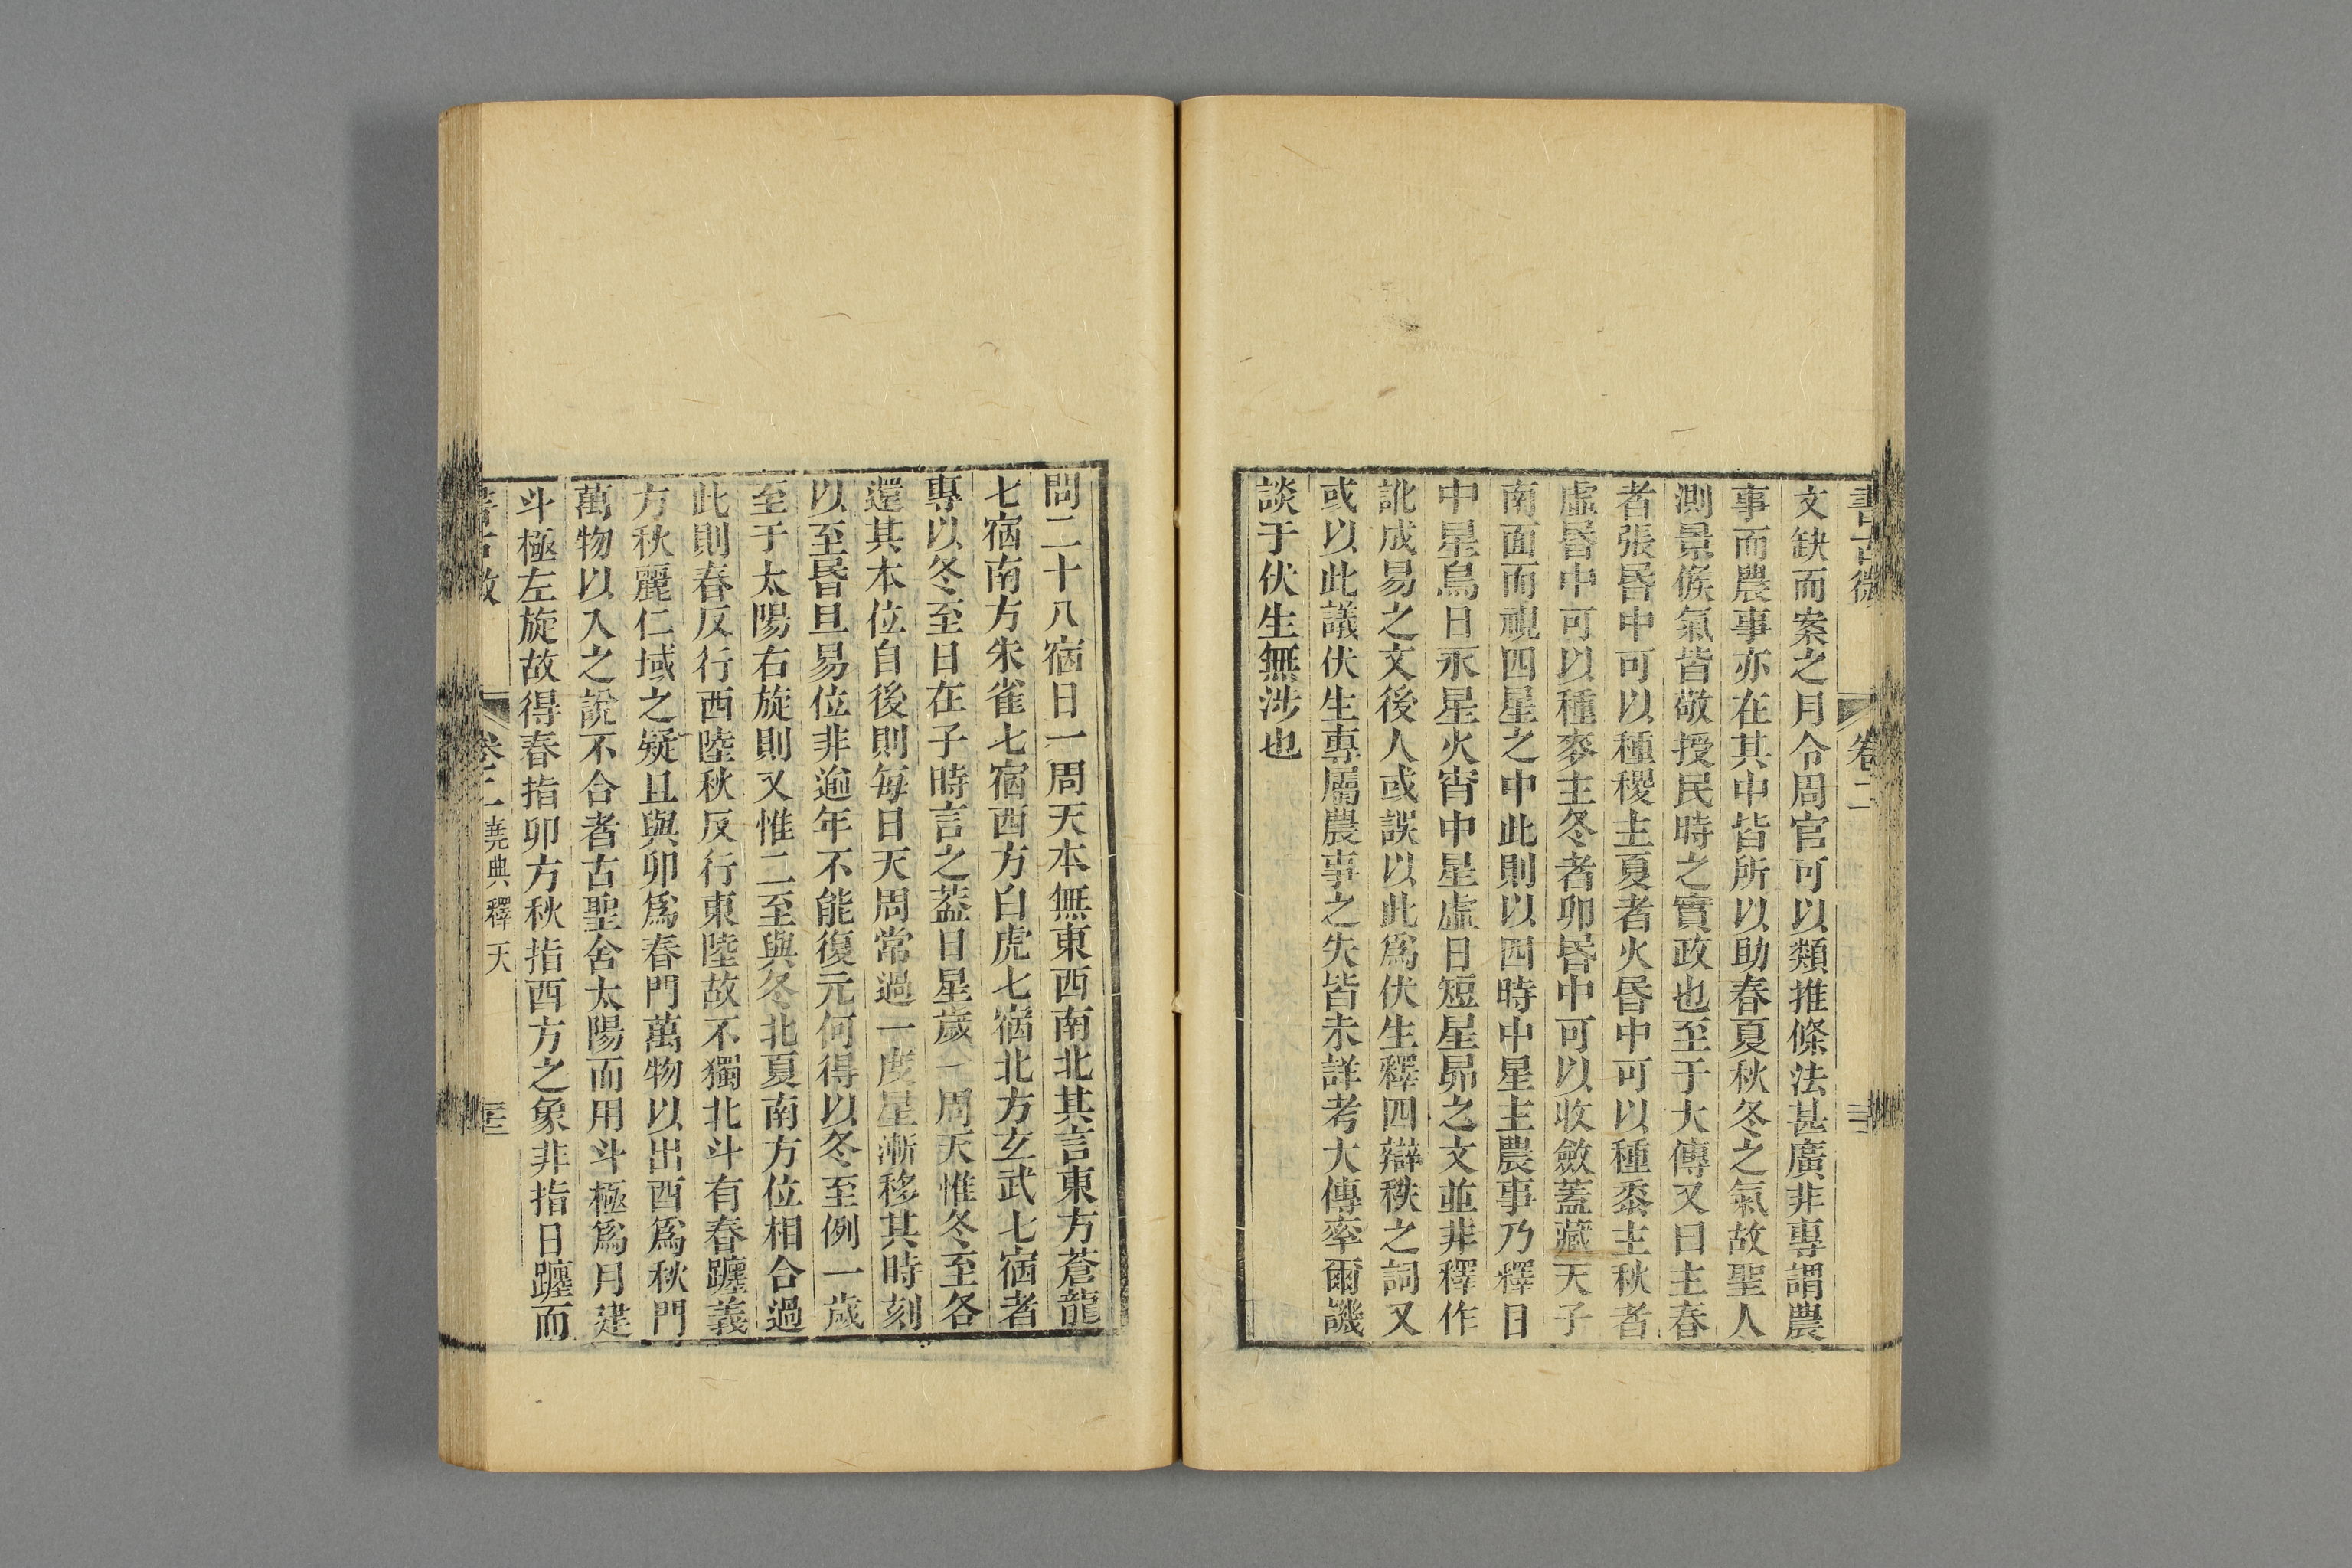 書古微 卷二
文缺而案之月令周官可以類推條法甚廣非專謂農
事而農事亦在其中皆所以助春夏秋冬之氣故聖人
測景候氣皆敬授民時之實政也至于大傳又曰主春
者張昏中可以種稷主夏者火昏中可以種黍主秋者
虛昏中可以種麥主冬者卯昏中可以收斂蓋藏天子
南面而視四星之中此則以四時中星主農事乃釋日
中星鳥日永星火宵中星虛日短星昴之文並非釋作
訛成易之文後人或誤以此爲伏生釋四辯秩之詞又
或以此議伏生專屬農事之失皆未詳考大傳率爾譏
談于伏生無涉也
問二十八宿日一周天本無東西南北其言東方蒼龍
七宿南方朱雀七宿西方白虎七宿北方玄武七宿者
專以冬至日在子時言之葢日星歲一周天惟冬至各
還其本位自後則每日天周常過一度星漸移其時刻
以至昏旦易位非逾年不能復元何得以冬至例一歲
至于太陽右旋則又惟二至與冬北夏南方位相合過
此則春反行西陸秋反行東陸故不獨北斗有春躔義
方秋麗仁域之疑且與卯爲春門萬物以出酉爲秋門
萬物以入之說不合者古聖舍太陽而用斗極爲月建
斗極左旋故得春指卯方秋指西方之象非指日躔而
卷二 堯典釋天